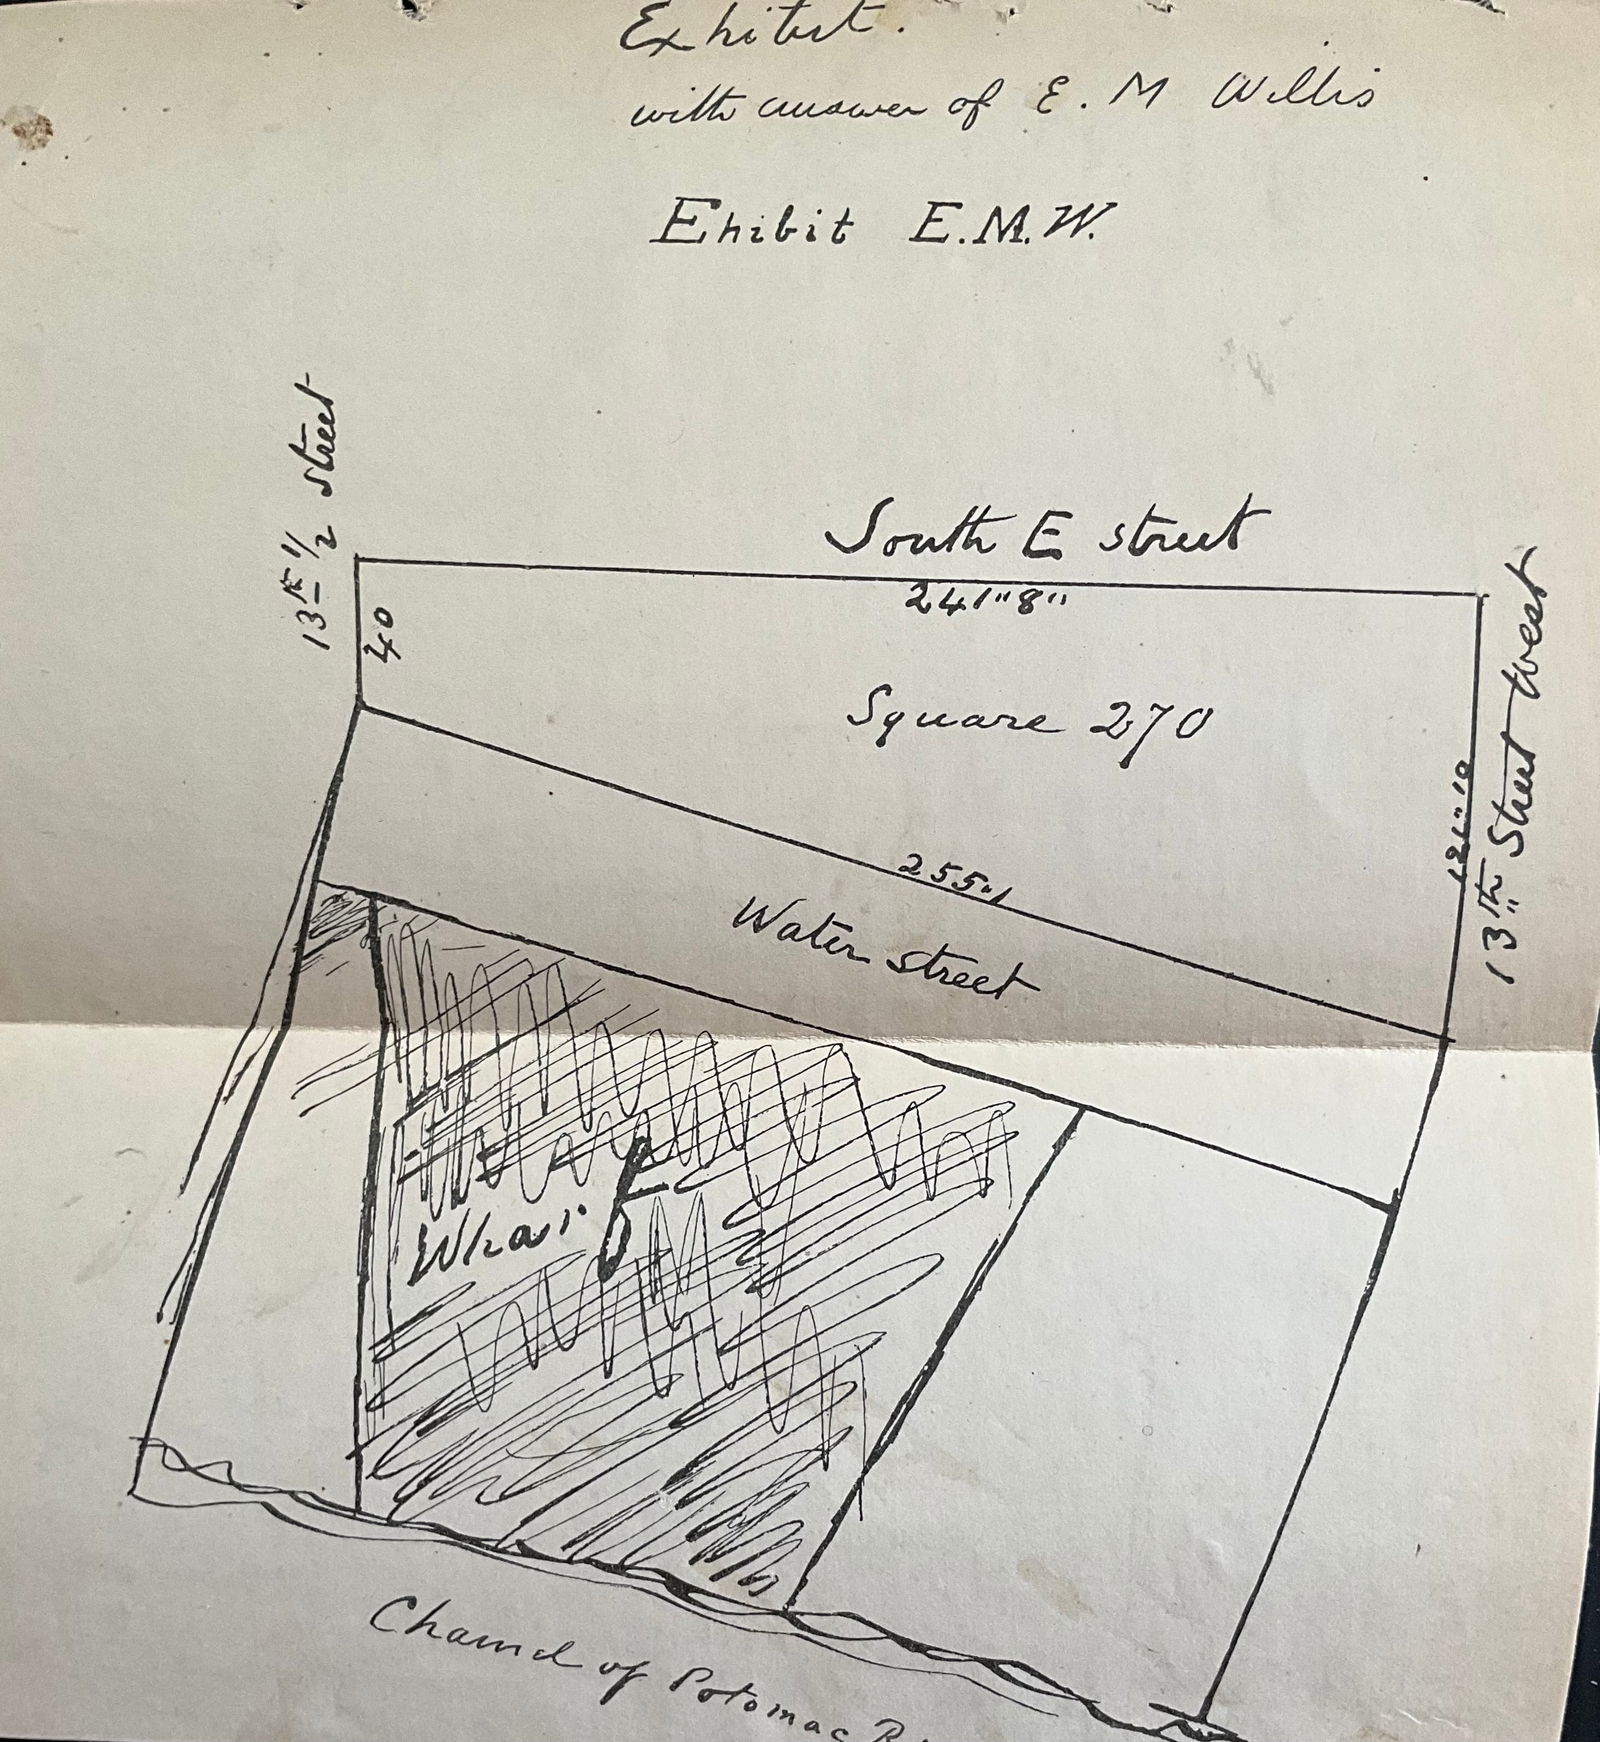 Exhibit.
with answer of E. M Willis
Ehibit E.M.W.
13th 1/2 street
South E street
241"8"
40
Square 270
121"10
13th Street West
255"1
Water street
Wharf
Channel of Potomac